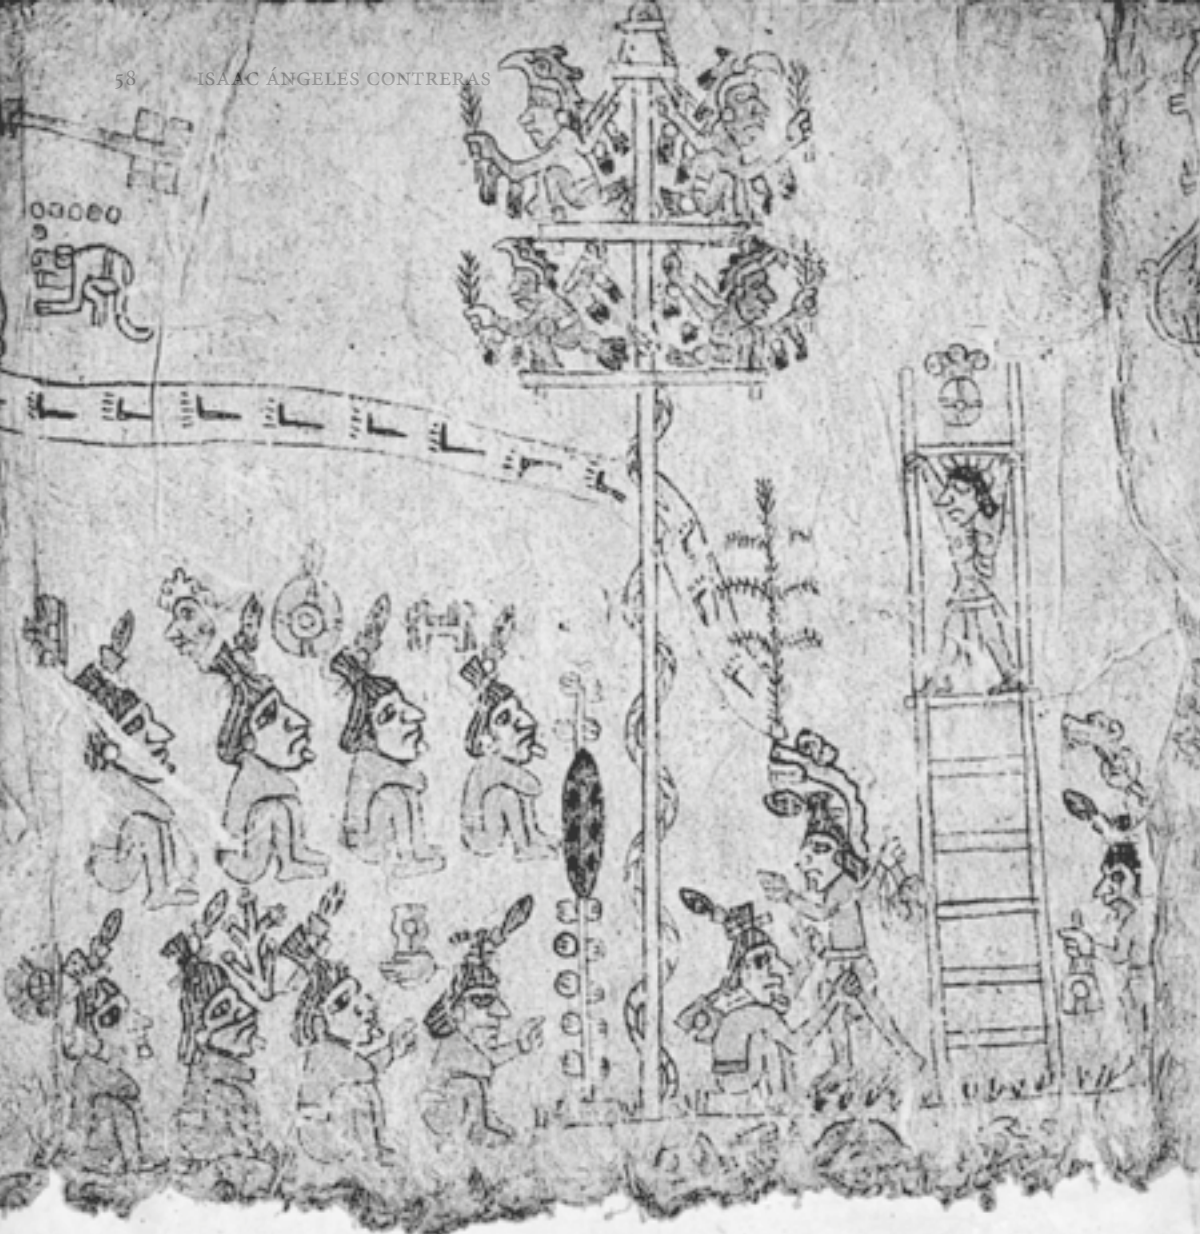 58 ISAAC ÁNGELES CONTRERAS